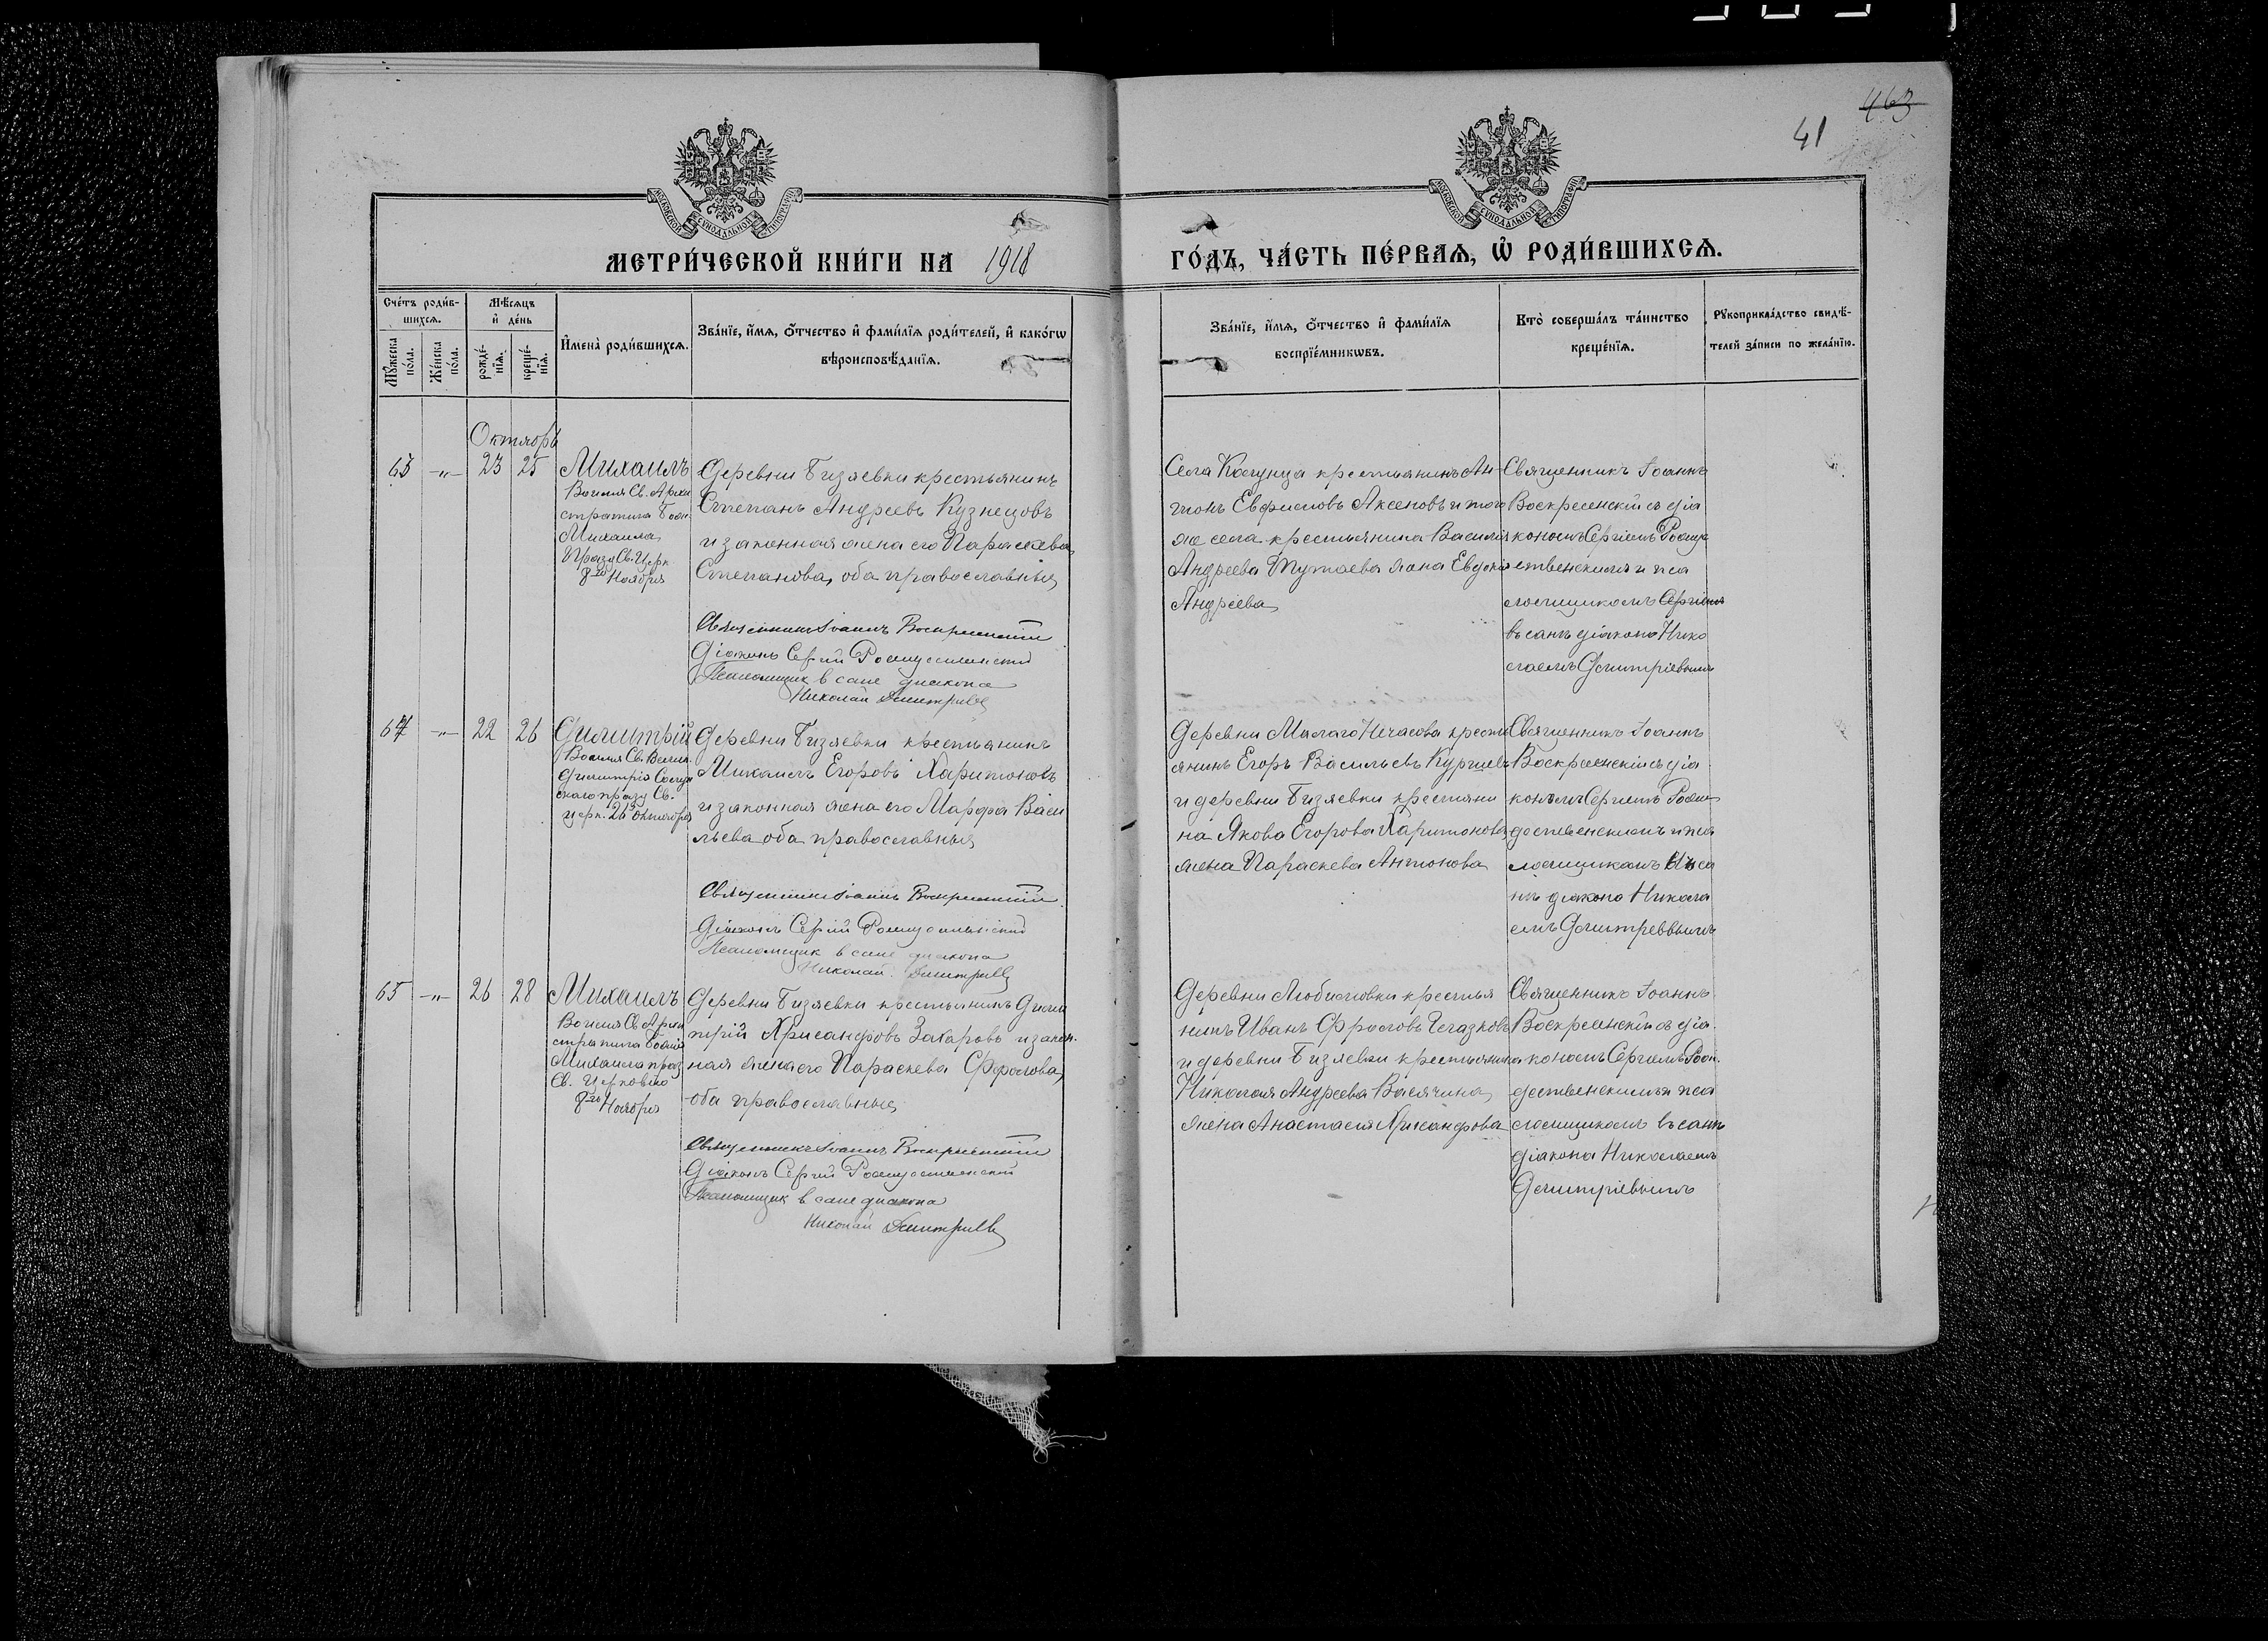 463
41
МОСКОВСКОЙ СѴНОДАЛЬНОЙ ТИПОГРАФІИ
МОСКОВСКОЙ СѴНОДАЛЬНОЙ ТИПОГРАФІИ
МЕТРИ́ЧЕСКОЙ КНИ́ГИ НА 1918
ГО́ДЪ, ЧА́СТЬ ПЕ́РВАѦ, Ѽ РОДИ́ВШИХСѦ.
Сче́тъ роди́в-
шихсѧ.
Мꙋ́жеска
по́ла.
Же́нска
по́ла.
Мѣ́сѧцъ
и҆ де́нь
рожде́-
нїѧ.
креще́-
нїѧ.
И҆мена̀ роди́вшихсѧ.
Зва́нїе, и҆́мѧ, ѻ҆́тчество и҆ фами́лїѧ роди́телей, и҆ како́гѡ
вѣроисповѣ́данїѧ.
Зва́нїе, и҆́мѧ, ѻ҆́тчество и҆ фами́лїѧ
воспрїе́мникѡвъ.
Кто̀ соверша́лъ та́инство
креще́нїѧ.
Рꙋкоприкла́дство свидѣ́-
телей за́писи по жела́нїю.
Октябрь
63 -"- 23 25 Михаилъ
Во имя Св. Архи
стратига Бож.
Михаила
Празд Св. Церк
8го Ноября
Деревни Бизяевки крестьянинъ
Степанъ Андреевъ Кузнецовъ
и законная жена его Параскева
Степанова, оба православные
Священникъ Іоаннъ Воскресенскій
Діаконъ Сергій Рождественскій
Псаломщик в сане диакона
Николай Дмитриев
Села крестьянинъ Ан-
тонъ Аксеновъ и того
же села крестьянина Василія
Андреева жена Евдокія
Андреева
Священникъ Іоаннъ
Воскресенскій съ діа
кономъ Сергіемъ Рожд
ественскимъ и пса
ломщикомъ Сергіемъ
въ санѣ діакона Нико
лаемъ Димитріевымъ
64 -"- 22 26 Димитрій
Во имя Св. Велик.
Димитрія Солун
скаго празд Св.
церк. 26 Октября
Деревни Бизяевки крестьянинъ
Михаилъ Егоровъ Харитоновъ
и законная жена его Марфа Васи
льева оба православные
Священникъ Іоаннъ Воскресенскій
Діаконъ Сергій Рождественскій
Псаломщик в сане диакона
Николай Дмитриев
Деревни Малаго крестья
янинъ Егоръ Васильевъ
и деревни Бизяевки крестьяни
на Якова Егорова Харитонова
жена Параскева Антонова
Священникъ Іоаннъ
Воскресенскій съ діа
кономъ Сергіемъ Рож
дественскимъ и пса
ломщикомъ въ са
нѣ діакона Никола
емъ Димитреввымъ
65 -"- 26 28 Михаилъ
Во имя Св Архи
стратига Божія
Михаила праз
Св. Церковію
8го Ноября
Деревни Бизяевки крестьянинъ Дими
трій Хрисанфовъ Захаровъ и закон.
ная жена его Параскева Фролова,
оба православные
Священникъ Іоаннъ Воскресенскій
Діаконъ Сергій Рождественскій
Псаломщик в сане диакона
Николай Дмитриев
Деревни Любимовки крестья
нинъ Иванъ Фроловъ
и деревни Бизяевки крестьянина
Николая Андреева
жена Анастасія Хрисанфова
Священникъ Іоаннъ
Воскресенскій съ діа.
кономъ Сергіемъ Рож.
дественскимъ и пса
ломщикомъ въ санѣ
діакона Николаемъ
Димитріевымъ